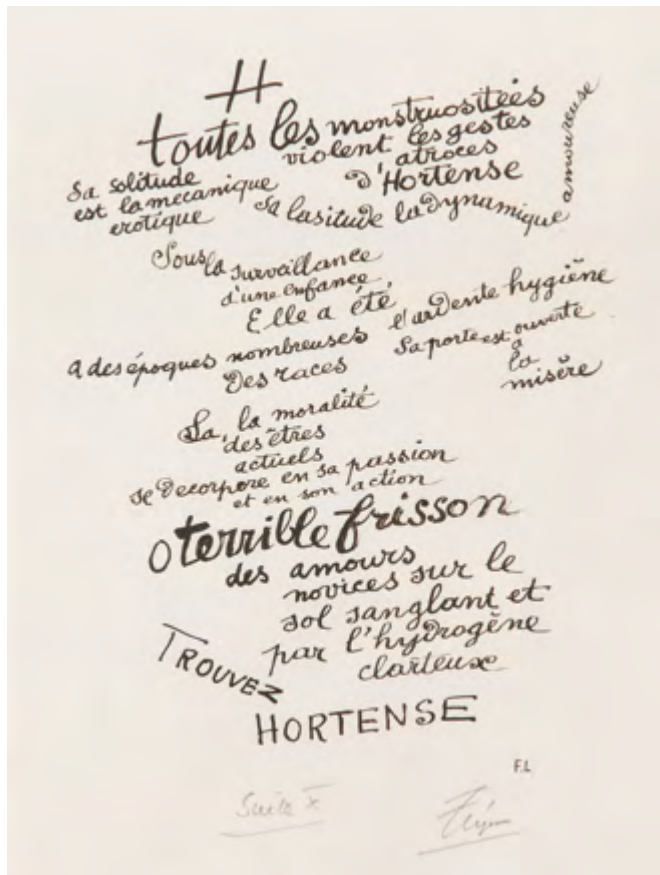 H
toutes les monstruositées
violent les gestes
atroces
d'Hortense
Sa solitude
est la mecanique
erotique
Sa lasitude la dynamique amoureuse
Sous la surveillance
d'une enfance
Elle a été
a des époques nombreuses
Des races
l'ardente hygiène
Sa porte est ouverte
a
la
misère
La, la moralité
des êtres
actuels
se decorpore en sa passion
et en son action
O terrible frisson
des amours
novices sur le
sol sanglant et
par l'hydrogène
clarteux
TROUVEZ
HORTENSE
F.L
Suite X